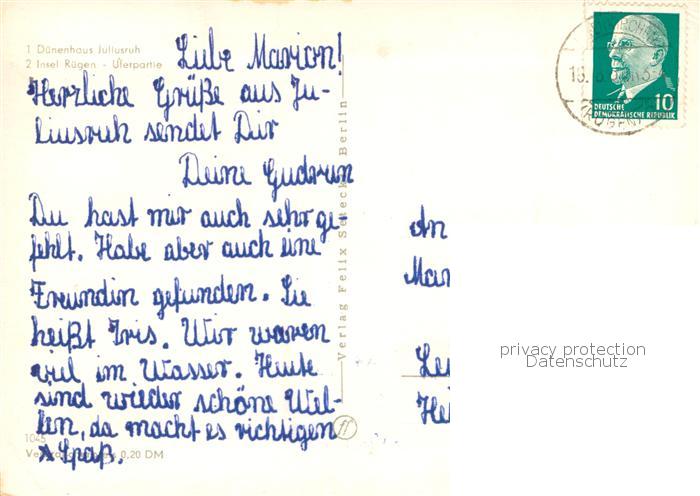 1 Dünenhaus Juliusruh
2 Insel Rügen - Uferpartie
Liebe Marion!
Herzliche Grüße aus Ju-
liusruh sendet Dir
Deine Gudrun
Du hast mir auch sehr ge-
fehlt. Habe aber auch eine
Freundin gefunden. Sie
heißt Iris. Wir waren
viel im Wasser. Heute
sind wieder schöne Wel-
len, da macht es richtigen
Spaß.
1045
0,20 DM
Verlag Felix Setecki Berlin
An
Mar
Lei
Hei
10
DEUTSCHE
DEMOKRATISCHE REPUBLIK
(RÜGEN)
privacy protection
Datenschutz